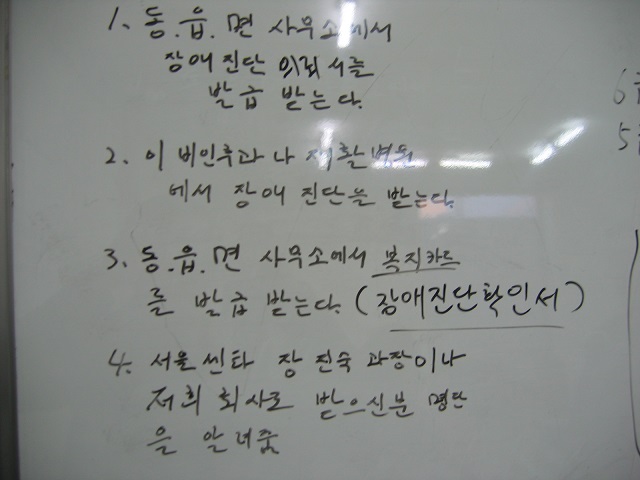 1. 동.읍.면 사무소에서
장애진단 의뢰서를
발급 받는다.
2. 이비인후과나 재활병원
에서 장애 진단을 받는다.
3. 동.읍.면 사무소에서 복지카드
를 발급 받는다. (장애진단확인서)
4. 서울쎈타 장진숙 과장이나
저희 회사로 받으신분 명단
을 알녀줌
6급
5급